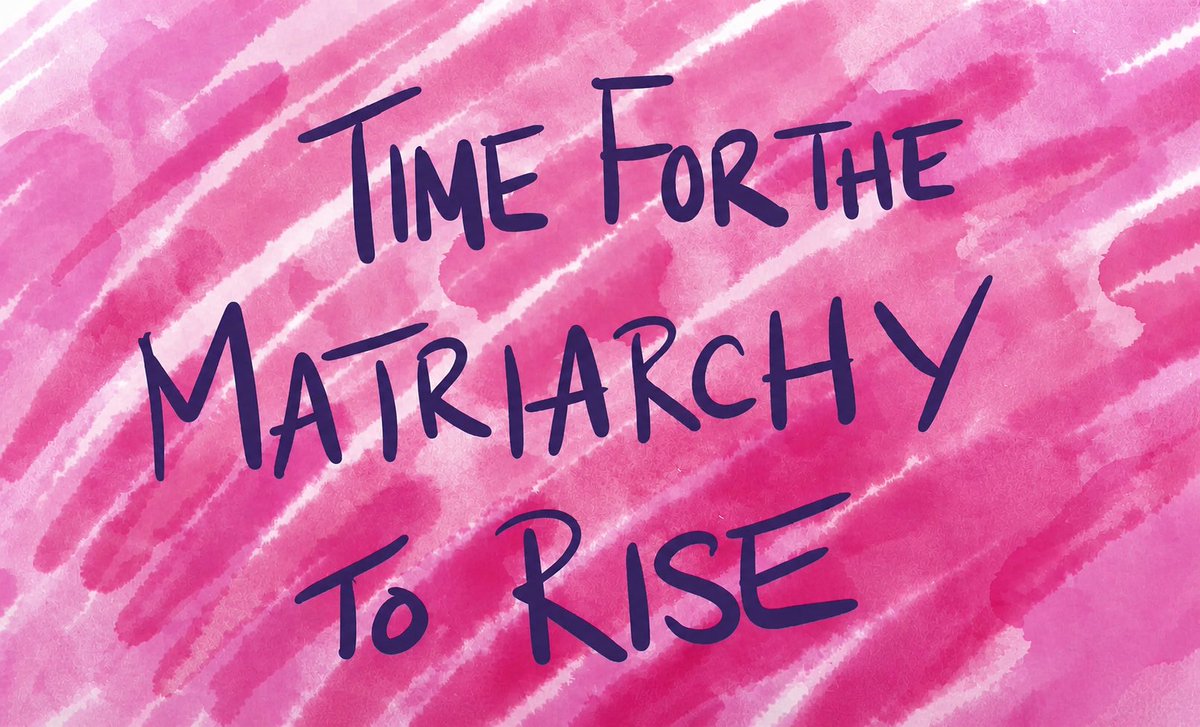 TIME FOR THE
MATRIARCHY
TO RISE